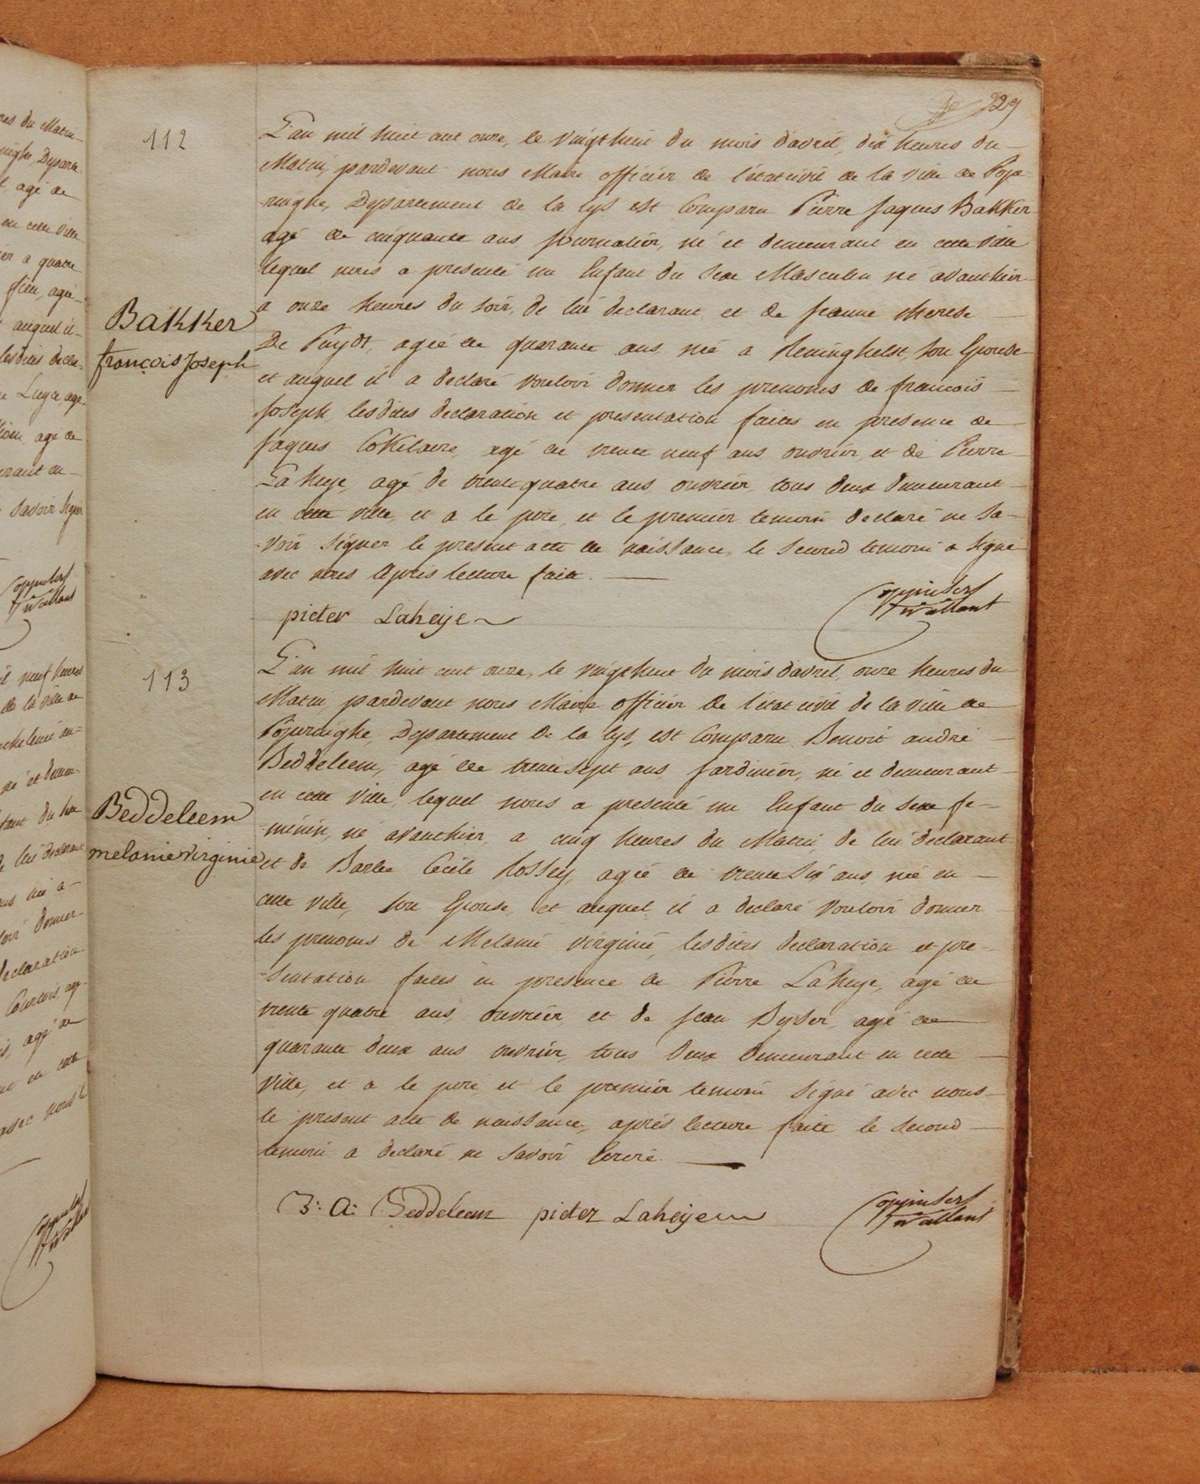 29
112
Bakker
françois Joseph
L'an mil huit cent onze, le vingt huit du mois d'avril, dix heures du
Matin, pardevant nous Maire officier de l'état civil de la ville de Pope
ringhe, Département de la Lys est Comparu Pierre Jaques Bakker
agé de cinquante ans journalier, né et demeurant en cette ville
lequel nous a presenté un Enfant du sexe Masculin né avanthier
a onze heures du soir, de lui declarant, et de Jeanne therese
De Puydt, agée de quarante ans née a Reninghelst, son Epouse
et auquel il a declaré vouloir donner les prenoms de francois
Joseph lesdites declaration et presentation faites en presence de
Jaques Cokelaere, agé de trente neuf ans ouvrier, et de Pierre
La heye, agé de trente quatre ans ouvrier, tous deux demeurant
en cette ville, et a le pere, et le premier temoin declaré ne sa-
voir signer le present acte de naissance, le second temoin a signé
avec nous après lecture faite.
pieter Laheÿe
113
Beddeleem
melanie virginie
L'an mil huit cent onze, le vingt huit du mois d'avril, onze heures du
Matin, pardevant nous Maire officier de l'état civil de la ville de
Poperinghe, Département de la Lys, est Comparu Benoit andré
Beddeleem, agé de trente sept ans, Jardinier, né et demeurant
en cette ville, lequel nous a presenté un Enfant du sexe fe-
-minin, né avanthier a cinq heures du Matin de lui declarant
et de Barbe Cécile Rossey, agée de trente Six ans, née en
cette ville, son Epouse, et auquel il a declaré vouloir donner
les prenoms de Melanie virginie, lesdites declaration et pre-
-sentation faites en presence de Pierre Laheye, agé de
trente quatre ans ouvrier, et de Jean agé de
quarante deux ans ouvrier, tous deux demeurant en cette
ville, et a le pere, et le premier temoin signé avec nous
le present acte de naissance, après lecture faite le second
temoin a declaré ne savoir Ecrire
B: A: Beddeleem pieter Laheÿe